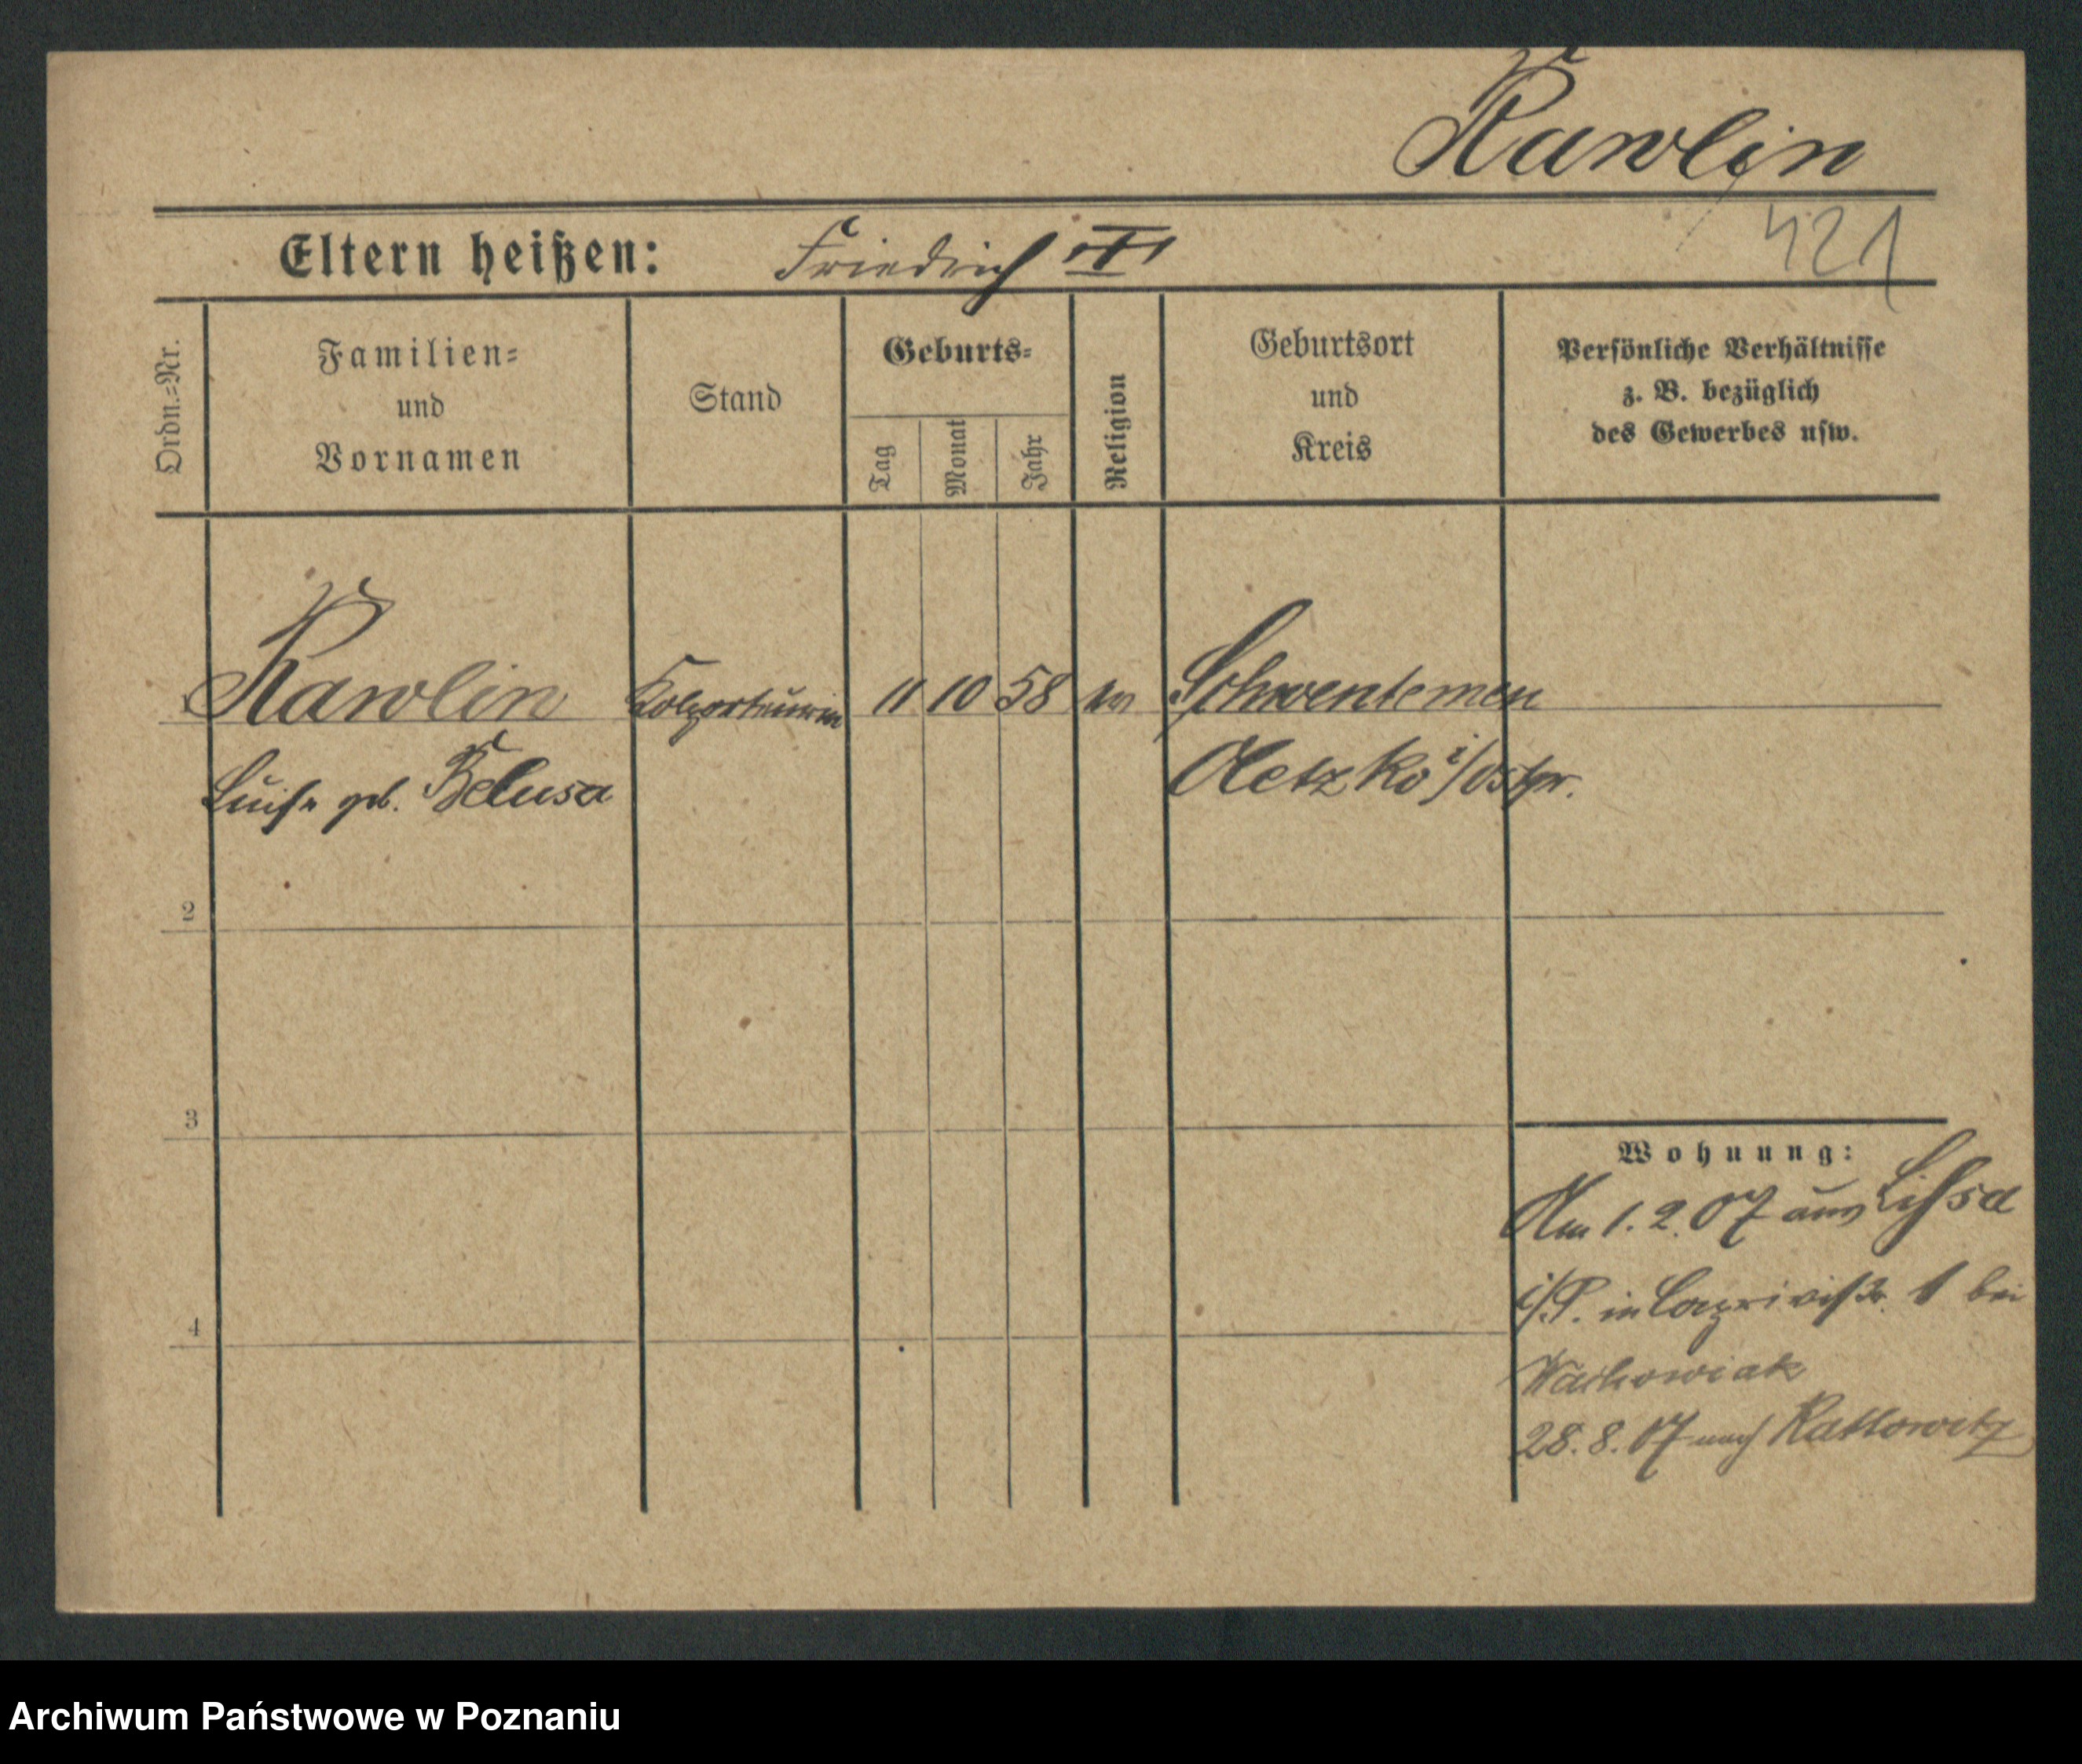 Rawlin
Eltern heißen: Friedrich III
421
Ordn.=Nr.
Familien=
und
Vornamen
Stand
Geburts=
Tag
Monat
Jahr
Religion
Geburtsort
und
Kreis
Persönliche Verhältnisse
z. B. bezüglich
des Gewerbes usw.
Rawlin Kolporteurin 11 10 58 Schwentemen
Luise geb. Belusa Oletzko i/Ostpr.
2
3
4
Wohnung:
Am 1. 2. 07 aus Lissa
i/P. in Caprivistr. 1 bei
Wachowiak
28. 8. 07 nach Kattowitz
Archiwum Państwowe w Poznaniu